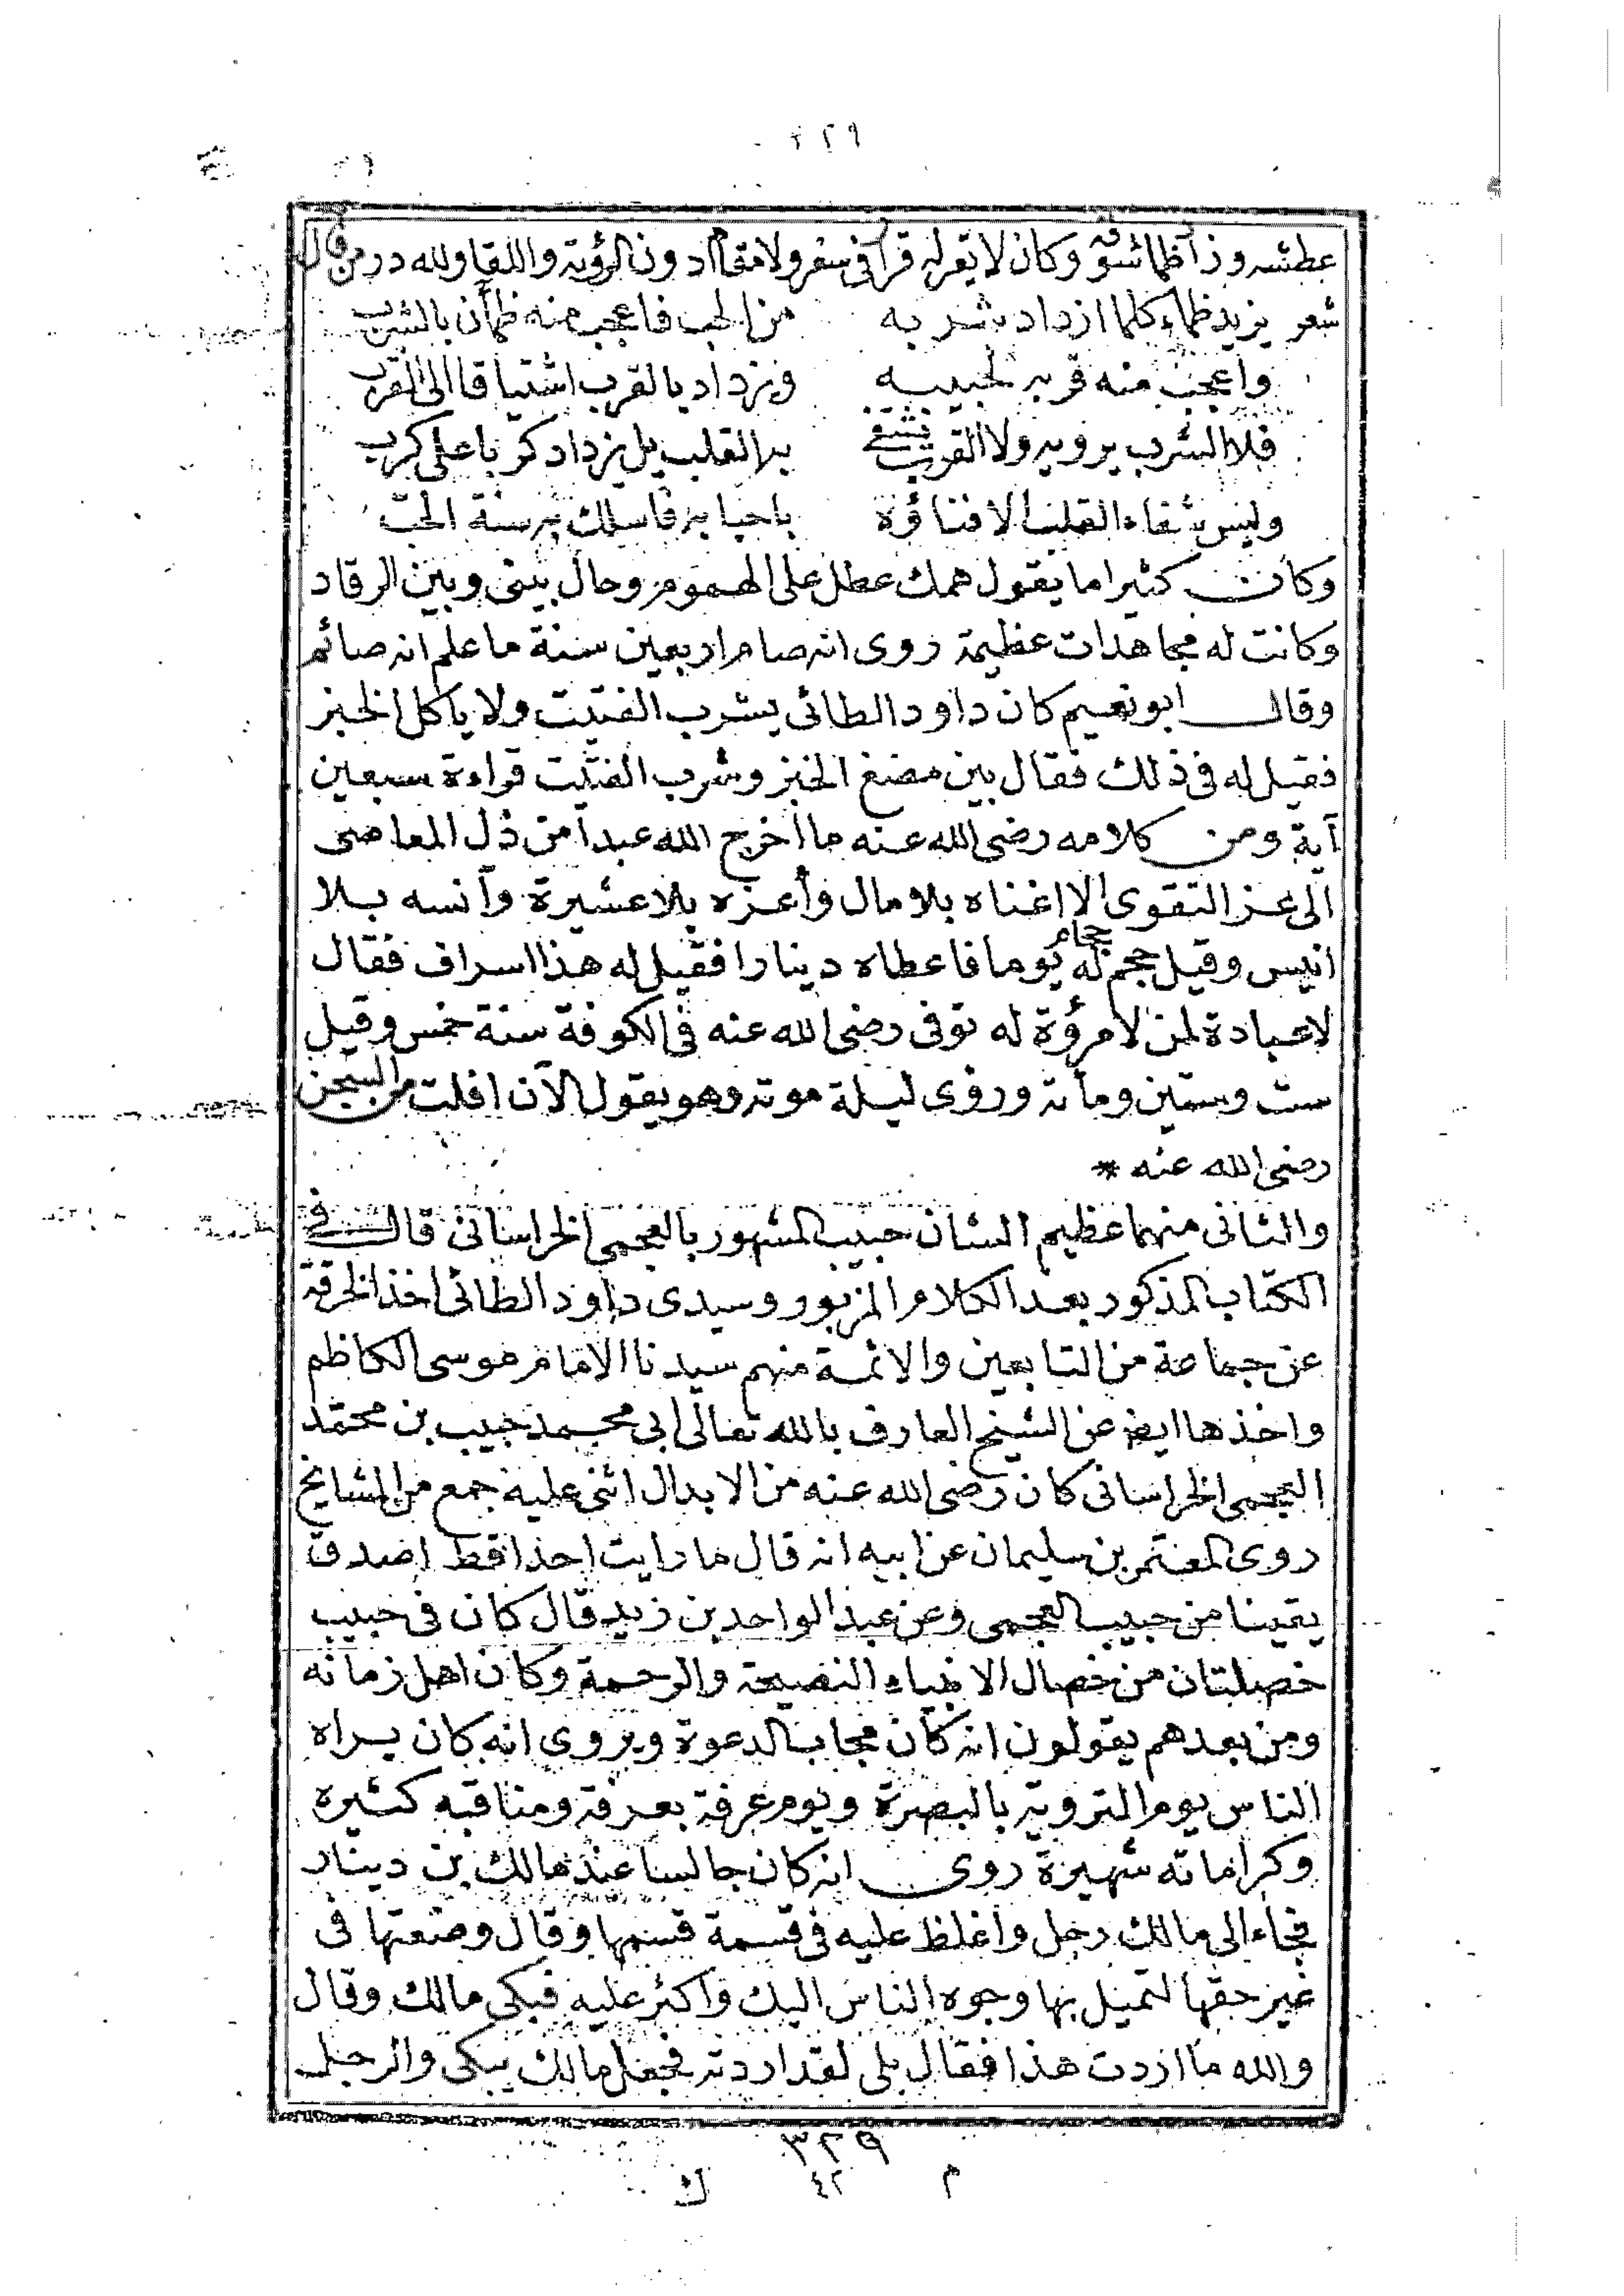 ٣٢٩
عطشه وزاد ظمأ شوقه وكان لا يقر له قرار فى سفر ولا مقام دون الرؤية واللقا ولله در من قال
شعر يزيد ظماء كلما ازداد شربه من الحب فاعجب منه ظمأن بالشرب
واعجب منه قربه لحبيبه ويزداد بالقرب اشتياقا الى القرب
فلا الشرب يرويه ولا القرب يشتفى به القلب بل يزداد كربا على كرب
وليس شفاء القلب الا فناؤه باحبابه فاسلك به سنة الحب
وكان كثيرا ما يقول همك عطل على الهموم وحال بينى وبين الرقاد
وكانت له مجاهدات عظيمة روى انه صام اربعين سنة ما علم انه صائم
وقال ابو نعيم كان داود الطائى يشرب الفتيت ولا ياكل الخبز
فقيل له فى ذلك فقال بين مضغ الخبز وشرب الفتيت قراءة سبعين
آية ومن كلامه رضى الله عنه ما اخرج الله عبدا من ذل المعاصى
الى عز التقوى الا اغناه بلا مال وأعزه بلا عشيرة وآنسه بلا
انيس وقيل حجم له حجام يوما فاعطاه دينارا فقيل له هذا اسراف فقال
لا عبادة لمن لا مرؤة له توفى رضى الله عنه فى الكوفة سنة خمس وقيل
ست وستين ومأته ورؤى ليلة موته وهو يقول الآن افلت من السجن
رضى الله عنه *
والثانى منهما عظيم الشان حبيب المشهور بالعجمى الخراسانى قال فى
الكتاب المذكور بعد الكلام المزبور وسيدى داود الطائى اخذ الخرقة
عن جماعة من التابعين والائمة منهم سيدنا الامام موسى الكاظم
واخذها ايضا عن الشيخ العارف بالله تعالى ابى محمد حبيب بن محمد
العجمى الخراسانى كان رضى الله عنه من الابدال اثنى عليه جمع من المشايخ
روى المعتمر بن سليمان عن ابيه انه قال ما رايت احدا قط اصدق
يقينا من حبيب العجمى وعن عبد الواحد بن زيد قال كان فى حبيب
خصلتان من خصال الانبياء النصيحة والرحمة وكان اهل زمانه
ومن بعدهم يقولون انه كان مجاب الدعوة ويروى انه كان يراه
الناس يوم التروية بالبصرة ويوم عرفة بعرفة ومناقبه كثيره
وكراماته شهيرة روى انه كان جالسا عند مالك بن دينار
فجاء الى مالك رجل واغلظ عليه فى قسمة قسمها وقال وضعتها فى
غير حقها لتميل بها وجوه الناس اليك واكثر عليه فبكى مالك وقال
والله ما اردت هذا فقال بلى لقد اردته فجعل مالك يبكى والرجل
٣٢٩
م ٤٢ ك